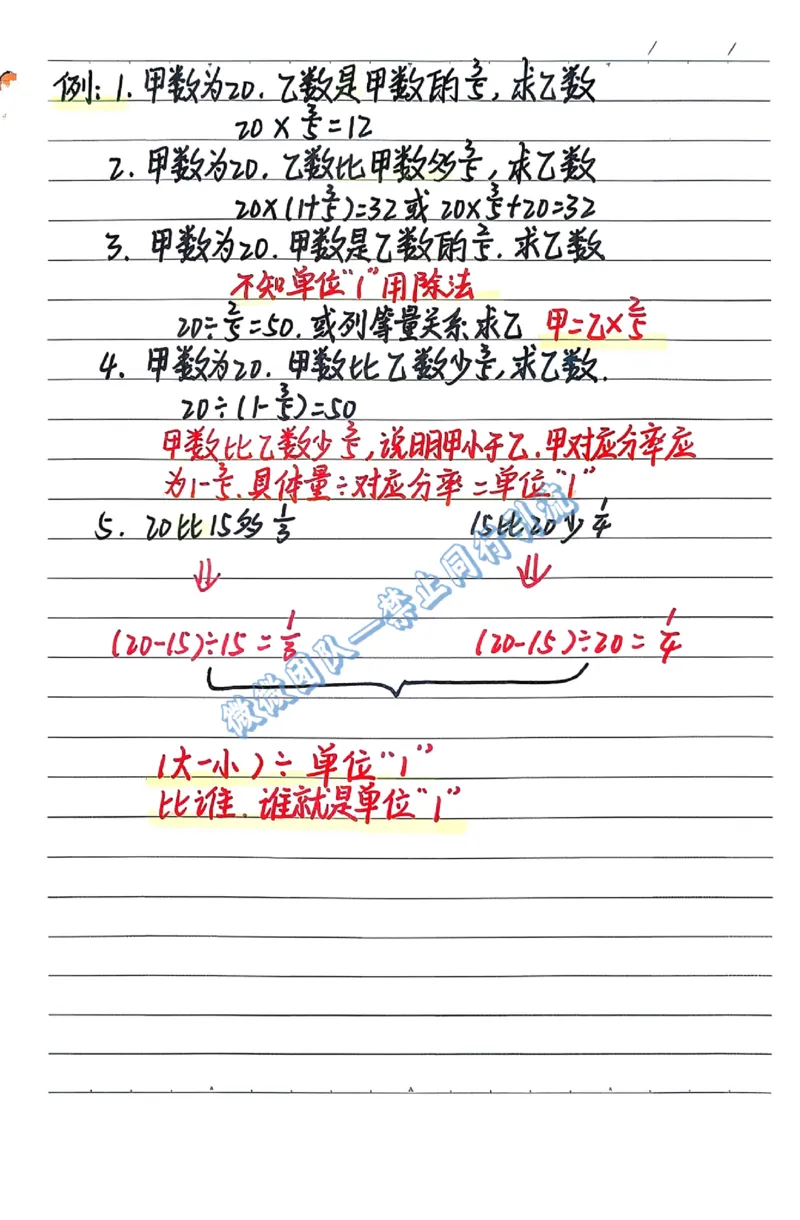 例: 1. 甲数为20. 乙数是甲数的3/5, 求乙数
20×3/5=12
2. 甲数为20. 乙数比甲数多3/5, 求乙数
20×(1+3/5)=32 或 20×3/5+20=32
3. 甲数为20. 甲数是乙数的2/5. 求乙数
不知单位“1”用除法
20÷2/5=50. 或列等量关系求乙 甲=乙×2/5
4. 甲数为20. 甲数比乙数少3/5, 求乙数.
20÷(1-3/5)=50
甲数比乙数少3/5, 说明甲小于乙. 甲对应分率应
为1-3/5. 具体量÷对应分率=单位“1”
5. 20比15多1/3 15比20少1/4
(20-15)÷15=1/3 (20-15)÷20=1/4
(大-小)÷单位“1”
比谁. 谁就是单位“1”
微微团队—禁止同行引流